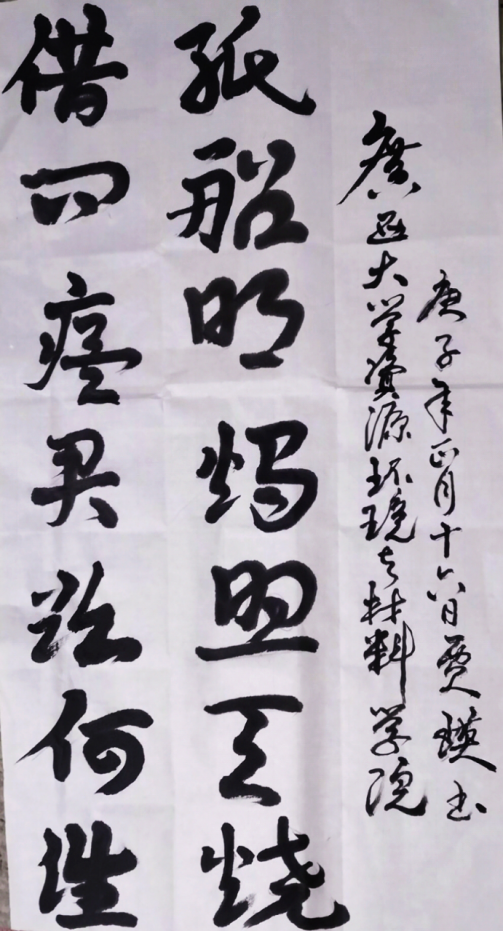 借问瘟君欲何往
纸船明烛照天烧
廣西大学资源环境与材料学院
庚子年正月十六日贾瑛书